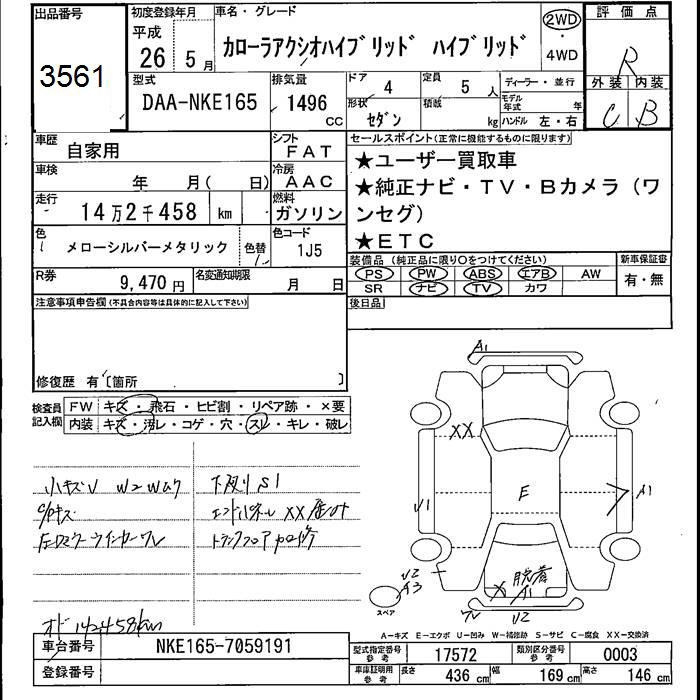 出品番号
3561
初度登録年月
平成
26 5月
車名・グレード
カローラアクシオハイブリッド ハイブリッド
2WD
・
4WD
評価点
R
外装 内装
C B
型式
DAA-NKE165
排気量
1496
CC
ドア 4
形状 セダン
定員 5 人
積載 kg
ディーラー・並行
モデル年式 年
ハンドル 左・右
車歴
自家用
シフト
FAT
車検
年 月( 日)
冷房
AAC
走行
14万2千458 km
燃料
ガソリン
色
メローシルバーメタリック
色替
色コード
1J5
R券
9,470円
名変通知期限
月 日
セールスポイント(正常に機能するものに限ります)
★ユーザー買取車
★純正ナビ・TV・Bカメラ(ワ
ンセグ)
★ETC
装備品 (純正品に限り○をつけてください)
PS PW ABS エアB AW
SR ナビ TV カワ
新車保証書
有・無
後日品
注意事項申告欄(不具合内容等は具体的に記入して下さい)
修復歴 有〔箇所 〕
検査員
記入欄
FW キズ・飛石・ヒビ割・リペア跡・×要
内装 キズ・汚レ・コゲ・穴・スレ・キレ・破レ
小キズU
下廻りS1
エンドパネルXX
トランクフロア
オド142458km
A1
XX
U1
E
A1
U2
A3
脱着
X A1
U2
スペア
A-キズ E-エクボ U-凹み W-補修跡 S-サビ C-腐食 XX-交換済
車台番号
NKE165-7059191
登録番号
型式指定番号
参考
17572
類別区分番号
参考
0003
車庫証明用
参考
長さ 436 cm 幅 169 cm 高さ 146 cm